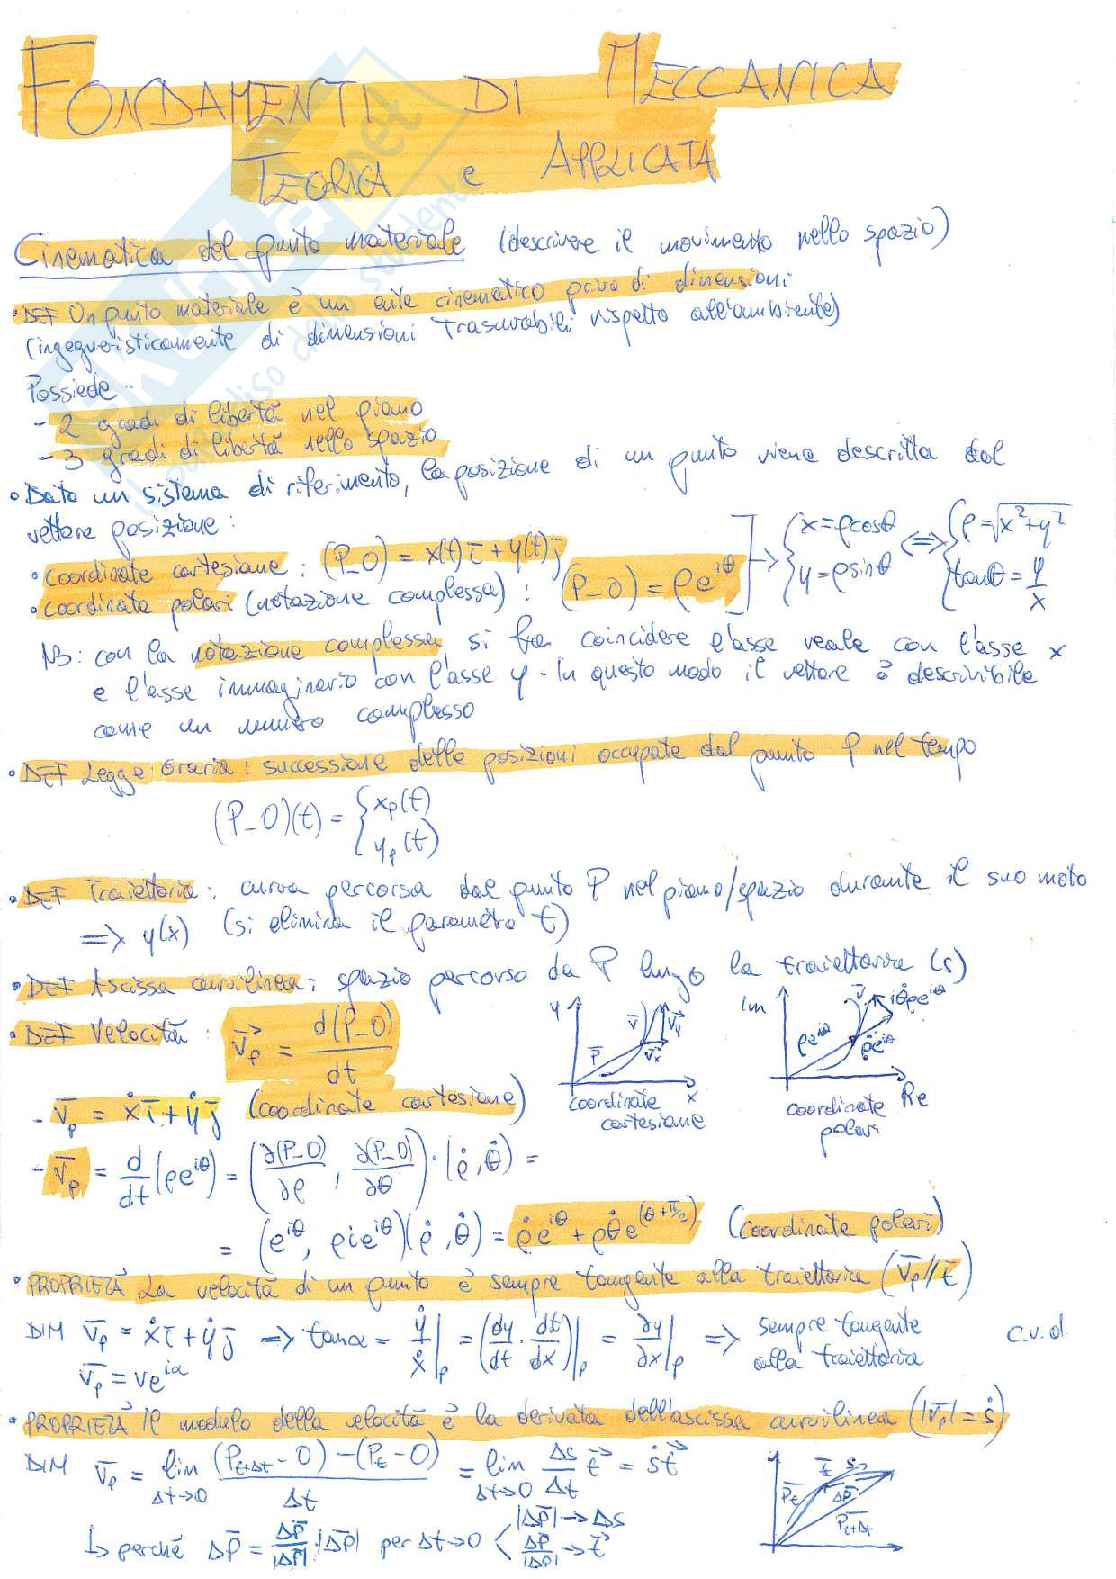 FONDAMENTI DI MECCANICA
TEORICA e APPLICATA
Cinematica del punto materiale (descrivere il movimento nello spazio)
• DEF Un punto materiale è un ente cinematico privo di dimensioni
(ingegneristicamente di dimensioni trascurabili rispetto all'ambiente)
Possiede:
- 2 gradi di libertà nel piano
- 3 gradi di libertà nello spazio
• Dato un sistema di riferimento, la posizione di un punto viene descritta dal
vettore posizione:
• coordinate cartesiane: (P-O) = x(t) i̅ + y(t) j̅
• coordinate polari (notazione complessa): (P-O) = ρe^{iθ} ] → { x=ρcosθ y=ρsinθ ⇔ { ρ=√(x²+y²) tanθ = y/x
NB: con la notazione complessa si fa coincidere l'asse reale con l'asse x
e l'asse immaginario con l'asse y. In questo modo il vettore è descrivibile
come un numero complesso
• DEF Legge Oraria: successione delle posizioni occupate dal punto P nel tempo
(P-O)(t) = { xp(t) yp(t)
• DEF Traiettoria: curva percorsa dal punto P nel piano/spazio durante il suo moto
=> y(x) (si elimina il parametro t)
• DEF Ascissa curvilinea: spazio percorso da P lungo la traiettoria (s)
• DEF Velocità: v⃗p = d(P-O)/dt
y v̅ v̅y p̅ v̅x x
coordinate
cartesiane
Im ρe^{iθ} v̅ iθ̇ρe^{iθ} ρ̇e^{iθ} Re
coordinate
polari
- v̅p = ẋ i̅ + ẏ j̅ (coordinate cartesiane)
- v̅p = d/dt (ρe^{iθ}) = (∂(P-O)/∂ρ, ∂(P-O)/∂θ) · (ρ̇, θ̇) =
= (e^{iθ}, ρie^{iθ})(ρ̇, θ̇) = ρ̇e^{iθ} + ρθ̇e^{(θ+π/2)} (coordinate polari)
• PROPRIETÀ La velocità di un punto è sempre tangente alla traiettoria (v̅p // t̅)
DIM v̅p = ẋ i̅ + ẏ j̅ => tanα = ẏ/ẋ|p = (dy/dt · dt/dx)|p = ∂y/∂x|p => sempre tangente alla traiettoria c.v.d.
v̅p = ve^{iα}
• PROPRIETÀ Il modulo della velocità è la derivata dell'ascissa curvilinea (|v̅p| = ṡ)
DIM v̅p = lim Δt→0 ((P_{t+Δt} - O) - (P_t - O))/Δt = lim Δt→0 Δs/Δt t⃗ = ṡt⃗
t̅ s P̅t ΔP̅ P̅t+Δt
↳ perché ΔP̅ = ΔP̅/|ΔP̅| · |ΔP̅| per Δt→0 < |ΔP̅| → Δs ΔP̅/|ΔP̅| → t⃗